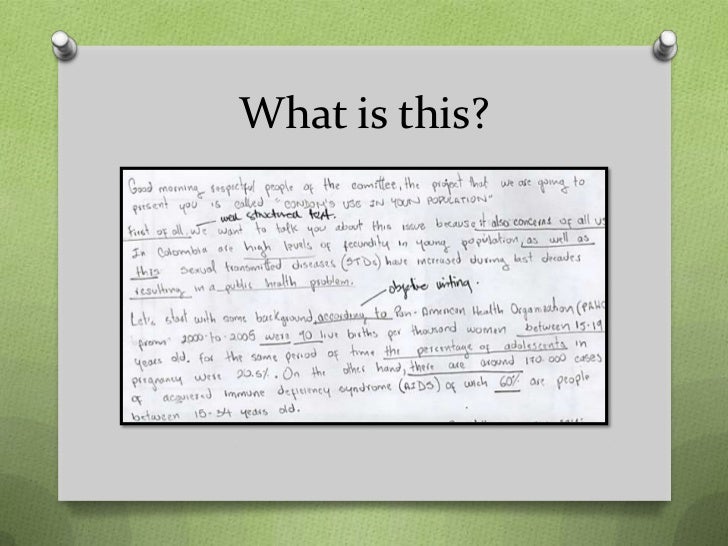 What is this?
Good morning respectful people of the comittee, the project that we are going to
present you is called "CONDOM'S USE IN YOUNG POPULATION"
well structured text.
First of all, we want to talk you about this issue because it also concerns of all us
In Colombia are high levels of fecundity in young population, as well as
this sexual transmitted diseases (STDs) have increased during last decades
resulting in a public health problem.
objective writing.
Let's start with some background, according to Pan-American Health Organization (PAHO
2000-to-2005 were 90 live births per thousand women between 15-19
years old. For the same period of time the percentage of adolescents in
pregnancy were 20.5%. On the other hand, there are around 170 000 cases
of acquiered immune deficiency syndrome (AIDS) of wich 60% are people
between 15-34 years old.